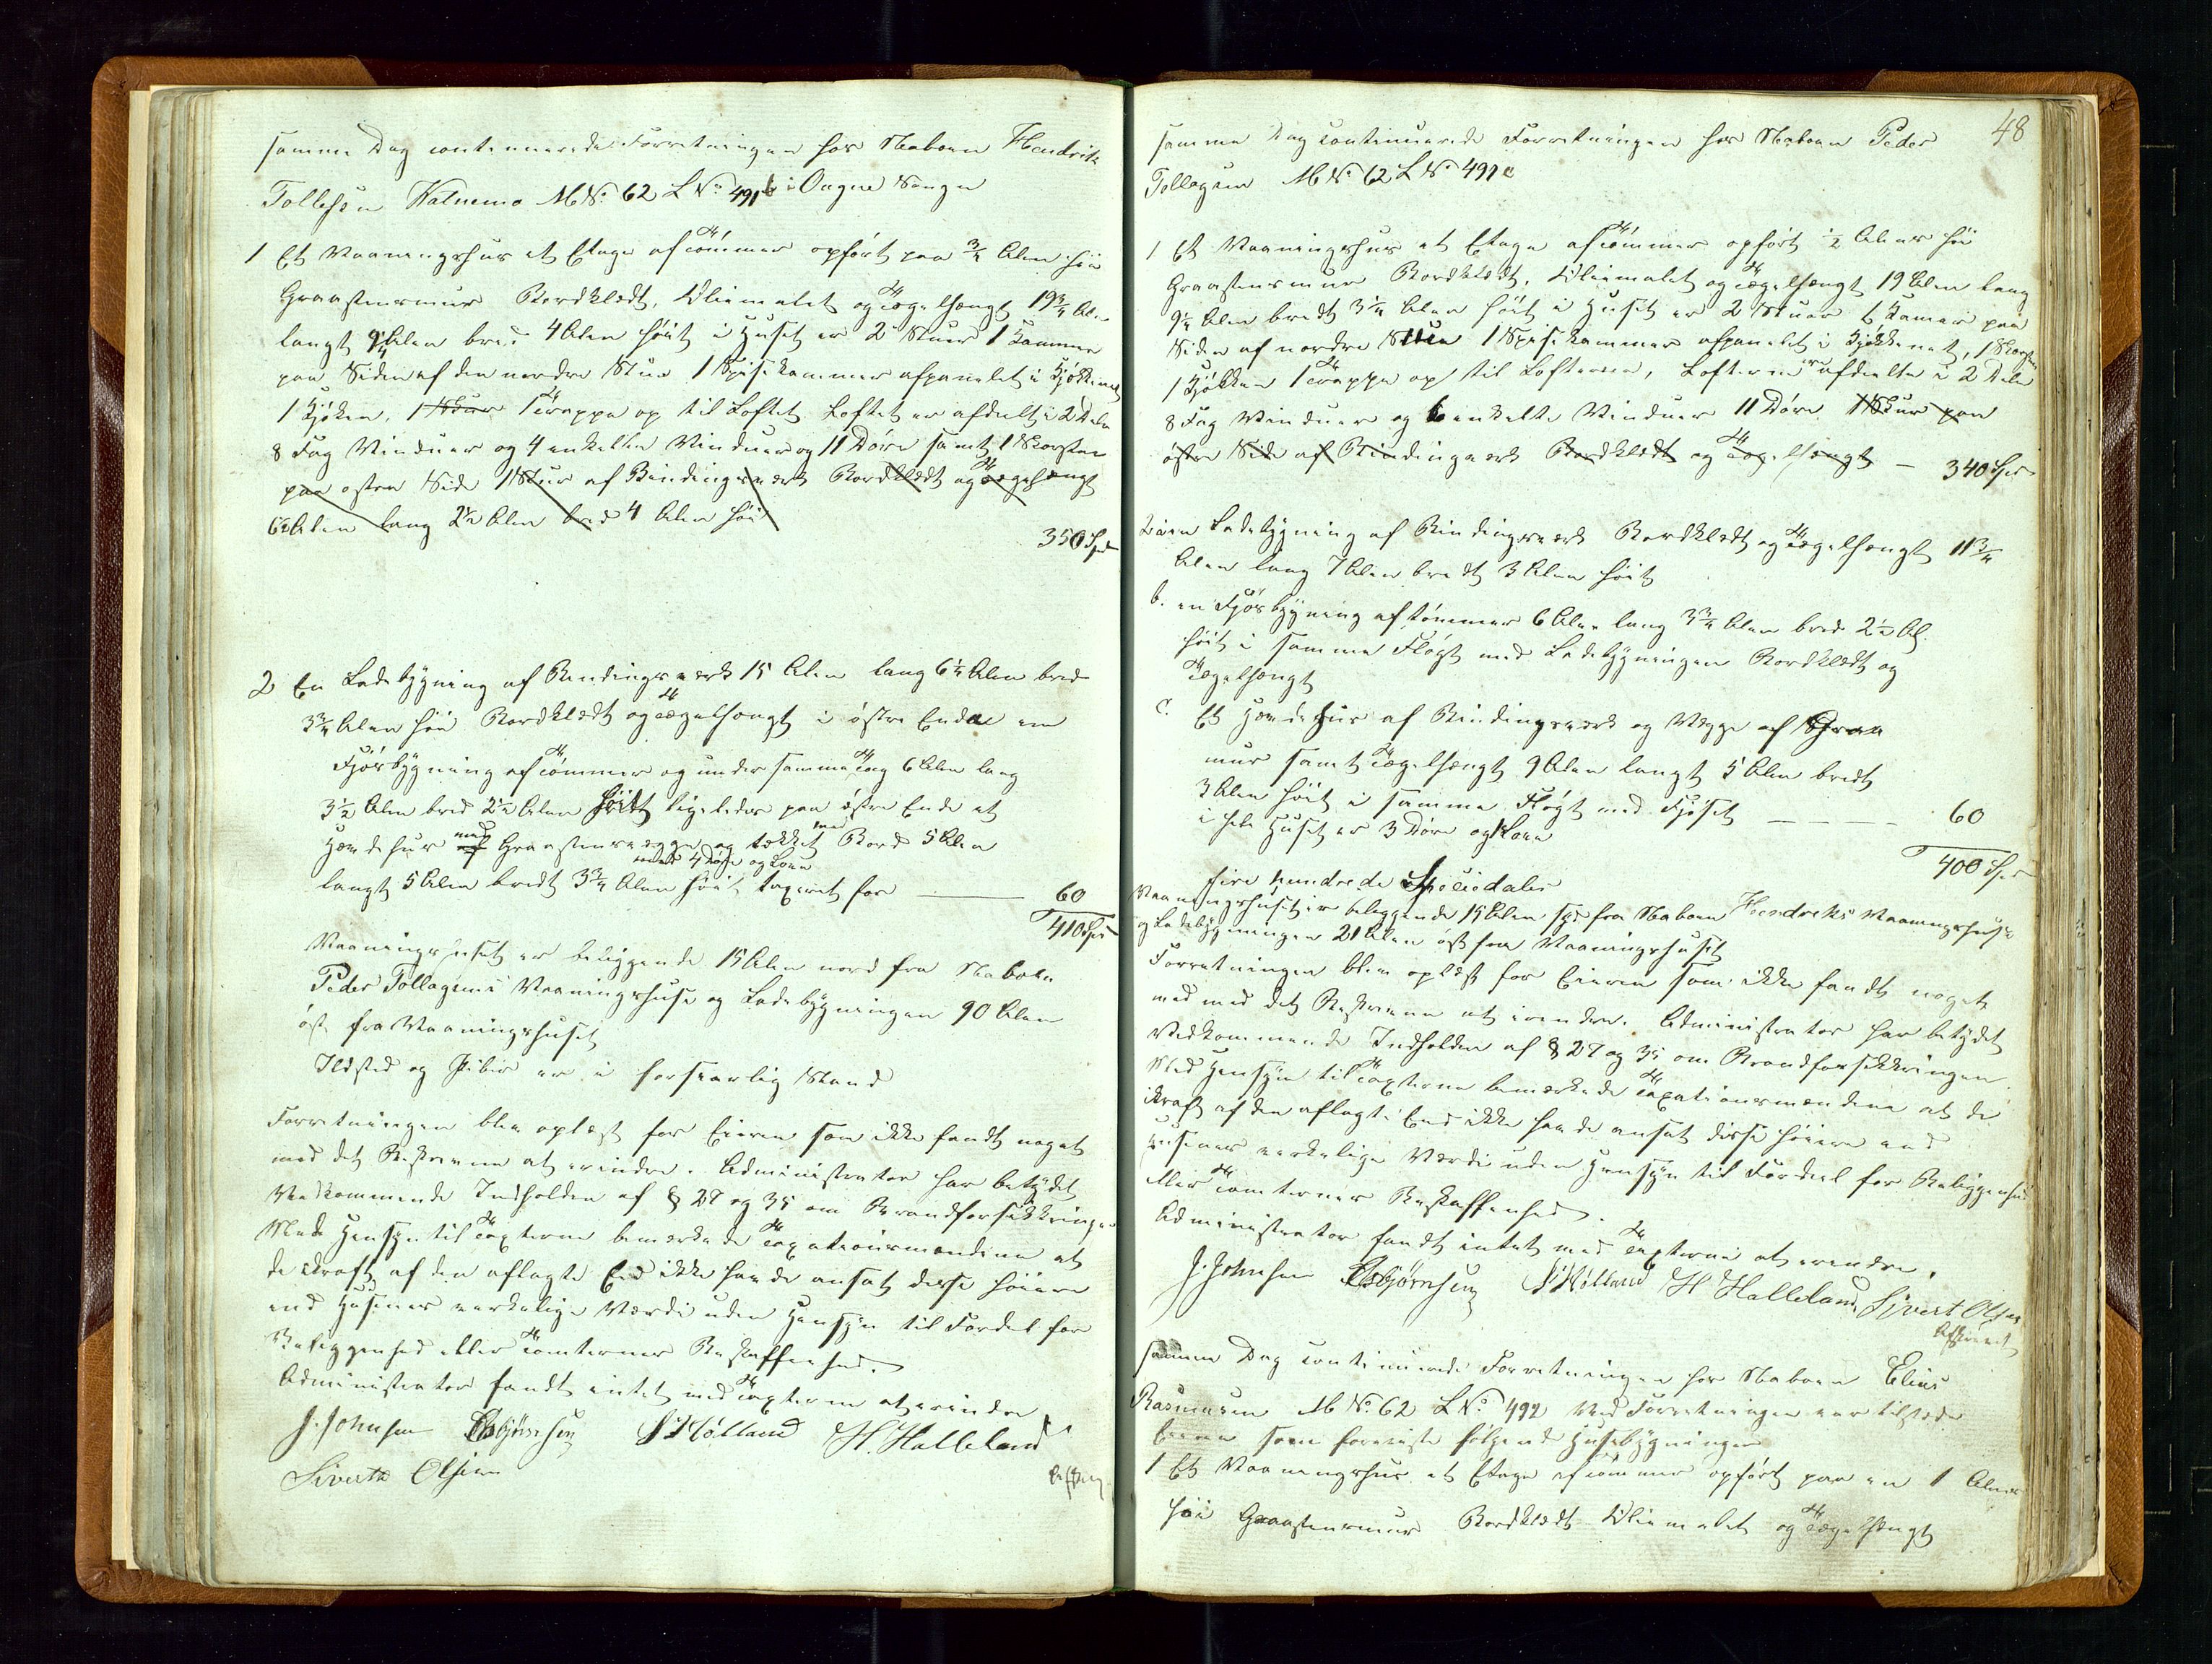 samme Dag continuerede Forretningen hos Naboen Hendrik
Tollefsen Hatnemo M No 62 L No 491 b i Ougne Sougn
1 Et Vaaningshus et Etage af Tömmer opfört paa 3/4 Alen höi
Graasteensmuur Bordklædt, Oliemalet og Tægelhængt 19 3/4 Alen
langt 9 1/4 Alen bred 4 Alen höit i Huset er 2 Stuer 1 Kammer
paa Siden af den nordre Stue 1 Spisekammer afpanelet i Kjökkenet
1 Kjöken, 1 Skur 1 Trappe op til Loftet Loftet er afdeelt i 2 Dele
8 Fag Vinduer og 4 enkelte Vinduer og 11 Döre samt 1 Skorsten
paa östre Side 1 Skur af Bindingsværk Bordklædt og Tægelhængt
6 1/2 Alen lang 2 1/2 Alen bred 4 Alen höi
350 Spd
2 En Ladebygning af Bindingsværk 15 Alen lang 6 1/4 Alen bred
3 3/4 Alen höi Bordklædt og Tægelhængt i östre Ende en
Fjösbygning af Tömmer og under samme Tag 6 Alen lang
3 1/2 Alen bred 2 1/2 Alen höit ligeledes paa östre Ende et
Hændehus med Graasteensvægge og tækket med Bord 5 Alen
med 4 Döre og Loen
langt 5 Alen bredt 3 3/4 Alen höit taxeret for 60
410 Spd
Vaaningshuset er beliggende 15 Alen nord fra Naboen
Peder Tollagsens Vaaningshuse og Ladebygningen 90 Alen
öst fra Vaaningshuset
Ildsted og Piber er i forsvarlig Stand
Forretningen blev oplæst for Eieren som ikke fandt noget
med det Beskrevne at erindre. Administrator har betydet
Vedkommende Indholden af § 27 og 35 om Brandforsikkringen
Med Hensyn til Taxterne bemærkede Taxationsmændene at
de ikraft af den aflagte Eed ikke havde ansat disse höiere
end Husenes verkelige Værdi uden Hensyn til Fordel for
Beliggenhed eller Tomternes Beskaffenhed.
Administrator fandt intet med Taxterne at erindre
J. Johnsen Esbjörnsen S Hölland H. Halleland
Sivert Olsen
48
samme Dag continuerede Forretningen hos Naboen Peder
Tollagsen M No 62 L No 491 c
1 Et Vaaningshus et Etage af Tömmer opfört 1/2 Alens höi
Graasteensmuur Bordklædt, Oliemalet og Tægelhængt 19 Alen lang
9 1/4 Alen bredt 3 1/4 Alen höit i Huset er 2 Stuer 1 Kamer paa
Siden af nordre Stue 1 Spisekammer afpanelet i Kjökkenet, 1 Skorsten
1 Kjökken 1 Trappe op til Lofterne, Lofterne ere afdeelte i 2 Dele
8 Fag Vinduer og 6 enkelte Vinduer 11 Döre 1 Skur paa
östre Side af Bindingværk Bordklædt og Tægelhængt — 340 Spd
2 a. en Ladebygning af Bindingsværk Bordklædt og Tægelhængt 11 3/4
Alen lang 7 Alen bredt 3 Alen höit
b. en Fjösbygning af tömmer 6 Alen lang 3 3/4 Alen bred 2 1/2 Al
höit i samme Flögt med Ladebygningen Bordklædt og
Tægelhængt
c. Et Hændehus af Bindingsværk og Vægge af Graa
muur samt Tægelhængt 9 Alen langt 5 Alen bredt
3 Alen höit i samme Flögt med Fjöset — — — — 60
i hele Huset er 3 Döre og Loen
400 Spd
fire hundrede Speciedaler
Vaaningshuset er beliggende 15 Alen syd fra Naboen Hendriks Vaaningshuse
og Ladebygningen 21 Alen öst fra Vaaningshuset
Forretningen blev oplæst for Eieren som ikke fandt noget
med med det Beskrevne at erindre. Administrator har betydet
Vedkommende Indholden af § 27 og 35 om Brandforsikkringen
Med Hensyn til Taxterne bemærkede Taxationsmændene at de
ikraft af den aflagte Eed ikke havde ansat disse höiere end
Husenes verkelige Værdi uden Hensyn til Fordeel for Beliggenhed
eller Tomternes Beskaffenhed.
Administrator fandt intet med Taxterne at erindre.
J. Johnsen Esbjörnsen S Hölland H Halleland Sjvert Olsen
Afskrevet
samme Dag continuerede Forretningen hos Naboen Elias
Rasmusen M No 62 L No 492 Ved Forretningen var tilstæde
Eieren som foreviste fölgende Husebygninger
1 Et Vaaningshus et Etage af Tömmer opfört paa en 1 Alens
höi Graasteensmuur Bordklædt Oliemalet og Tægelhængt